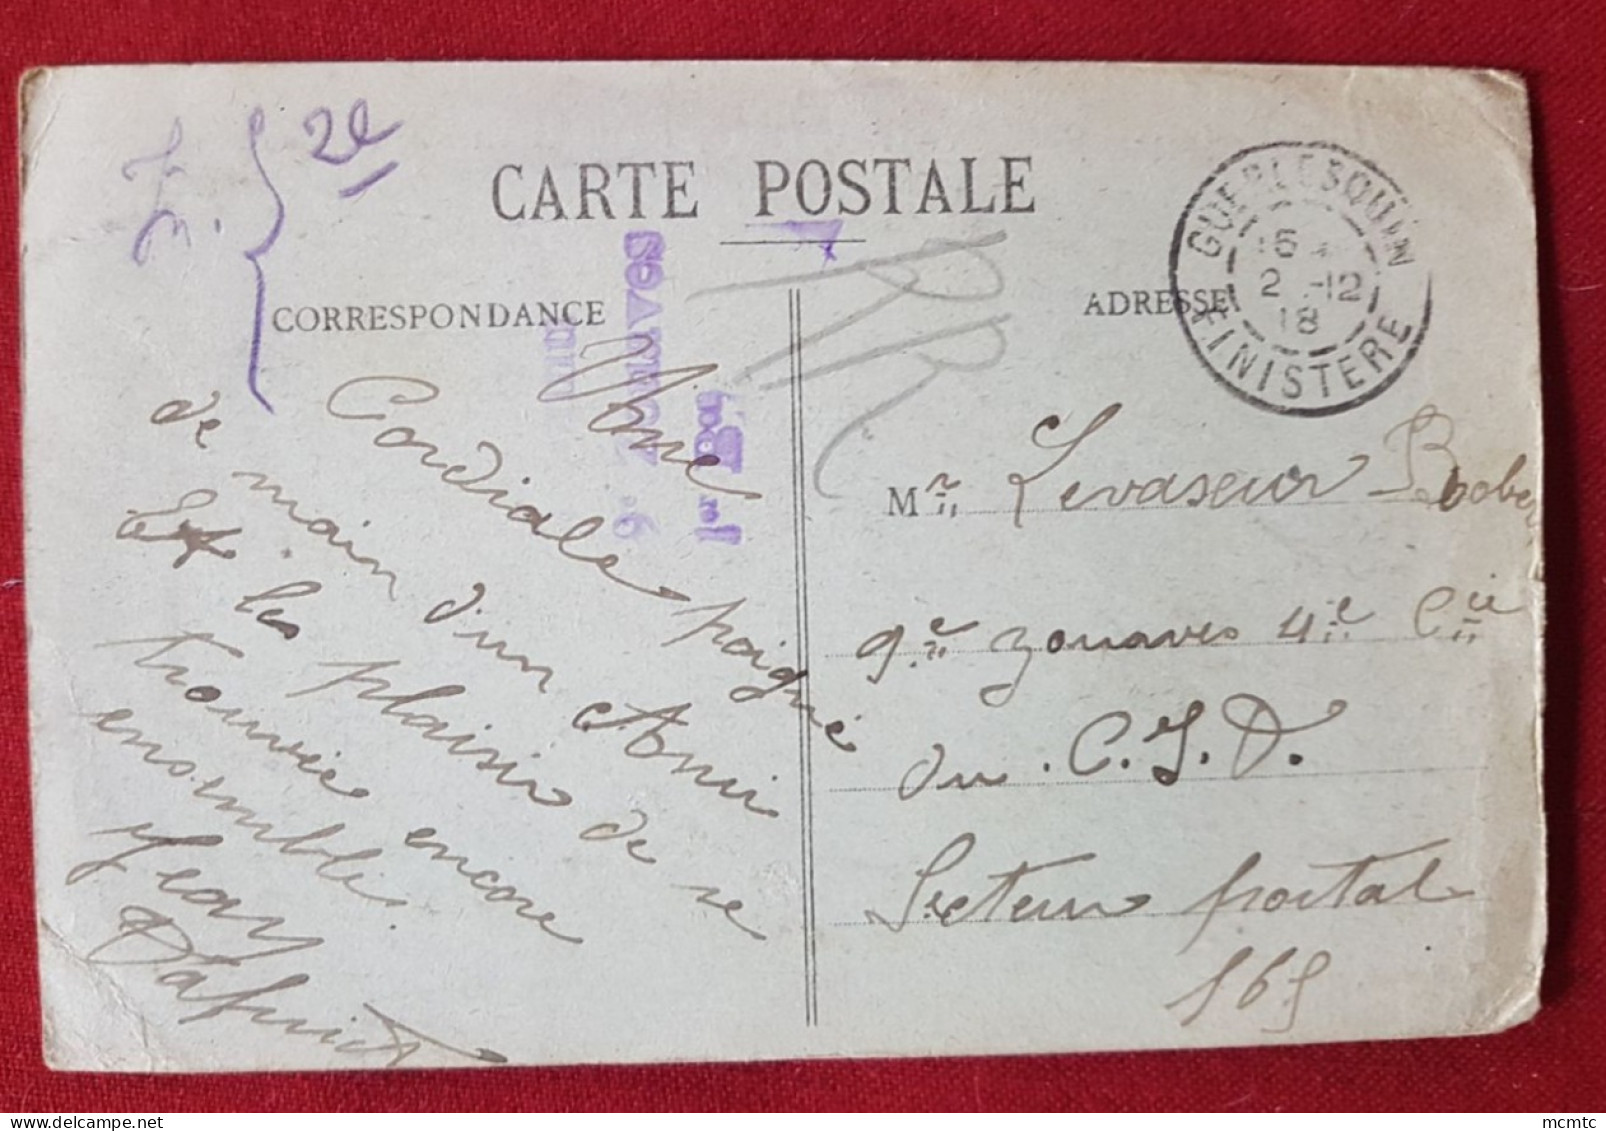 CARTE POSTALE
CORRESPONDANCE
ADRESSE
GUERLESQUIN
15
2 -12
18
FINISTERE
2e
Une
Cordiale poigné
de main d'un Ami
Et les plaisir de se
trouvée encore
ensemble.
Jean
9e Zouaves
1er Bon
RR
Mr Levaseur Robert
9e zouaves 4e Cie
du C.I.D.
Secteur postal
165
mcmtc